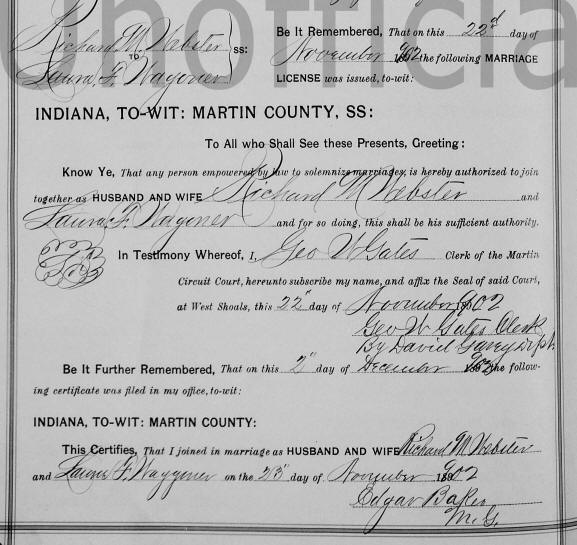 unofficial
Richard M. Webster
TO
Laura F. Wagoner
ss:
Be It Remembered, That on this 22d day of
November 1902 the following MARRIAGE
LICENSE was issued, to-wit:
INDIANA, TO-WIT: MARTIN COUNTY, SS:
To All who Shall See these Presents, Greeting:
Know Ye, That any person empowered by law to solemnize marriages, is hereby authorized to join
together as HUSBAND AND WIFE Richard M Webster and
Laura F. Wagoner and for so doing, this shall be his sufficient authority.
In Testimony Whereof, I, Geo W Gates Clerk of the Martin
Circuit Court, hereunto subscribe my name, and affix the Seal of said Court,
at West Shoals, this 22" day of November 1902
Geo W Gates Clerk
By David Dept.
Be It Further Remembered, That on this 2" day of December 1902 the follow-
ing certificate was filed in my office, to-wit:
INDIANA, TO-WIT: MARTIN COUNTY:
This Certifies, That I joined in marriage as HUSBAND AND WIFE Richard M Webster
and Laura F. Waggoner on the 23" day of November 1902
Edgar Baker
M.G.